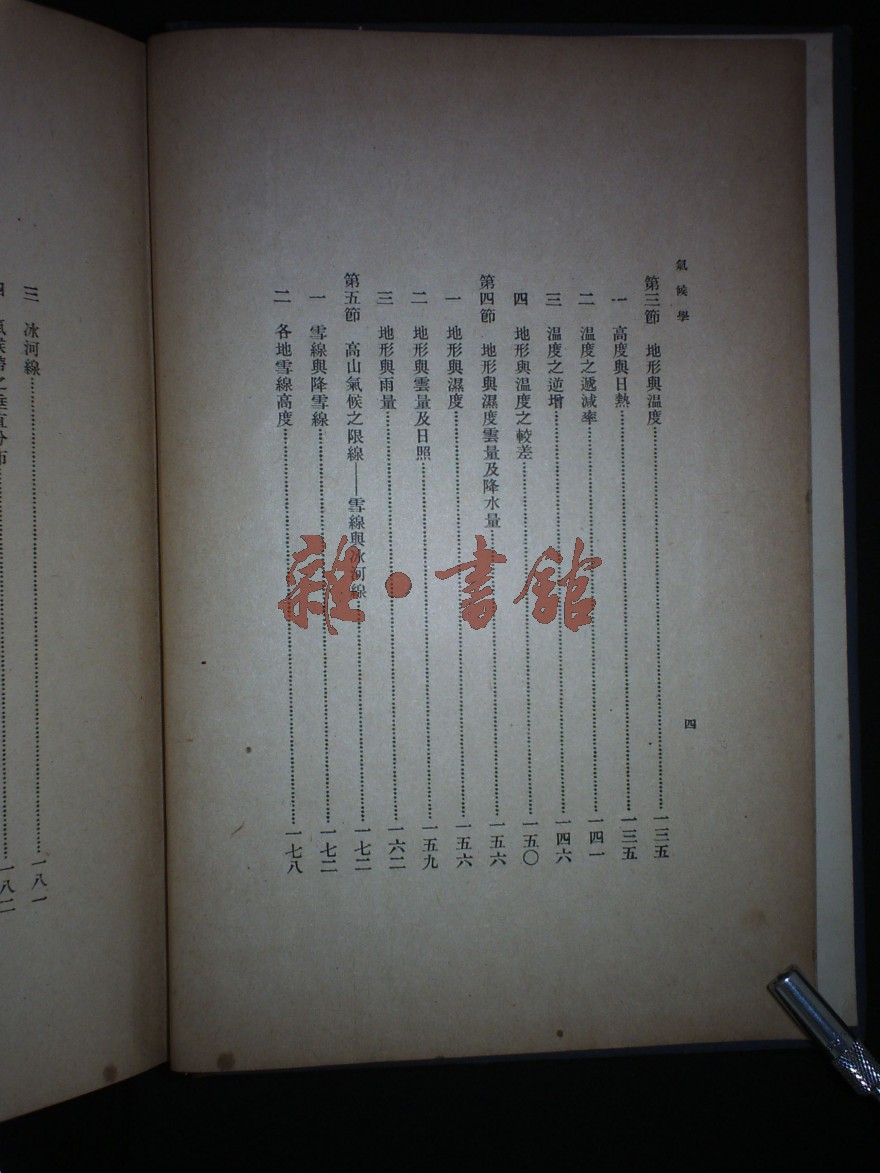 氣候學
四
第三節 地形與溫度……一三五
一 高度與日熱……一三五
二 溫度之遞減率……一四一
三 溫度之逆增……一四六
四 地形與溫度之較差……一五〇
第四節 地形與濕度雲量及降水量……一五六
一 地形與濕度……一五六
二 地形與雲量及日照……一五九
三 地形與雨量……一六二
第五節 高山氣候之限線——雪線與冰河線……一七二
一 雪線與降雪線……一七二
二 各地雪線高度……一七八
三 冰河線……一八一
四 氣候帶之垂直分布……一八二
雜·書館